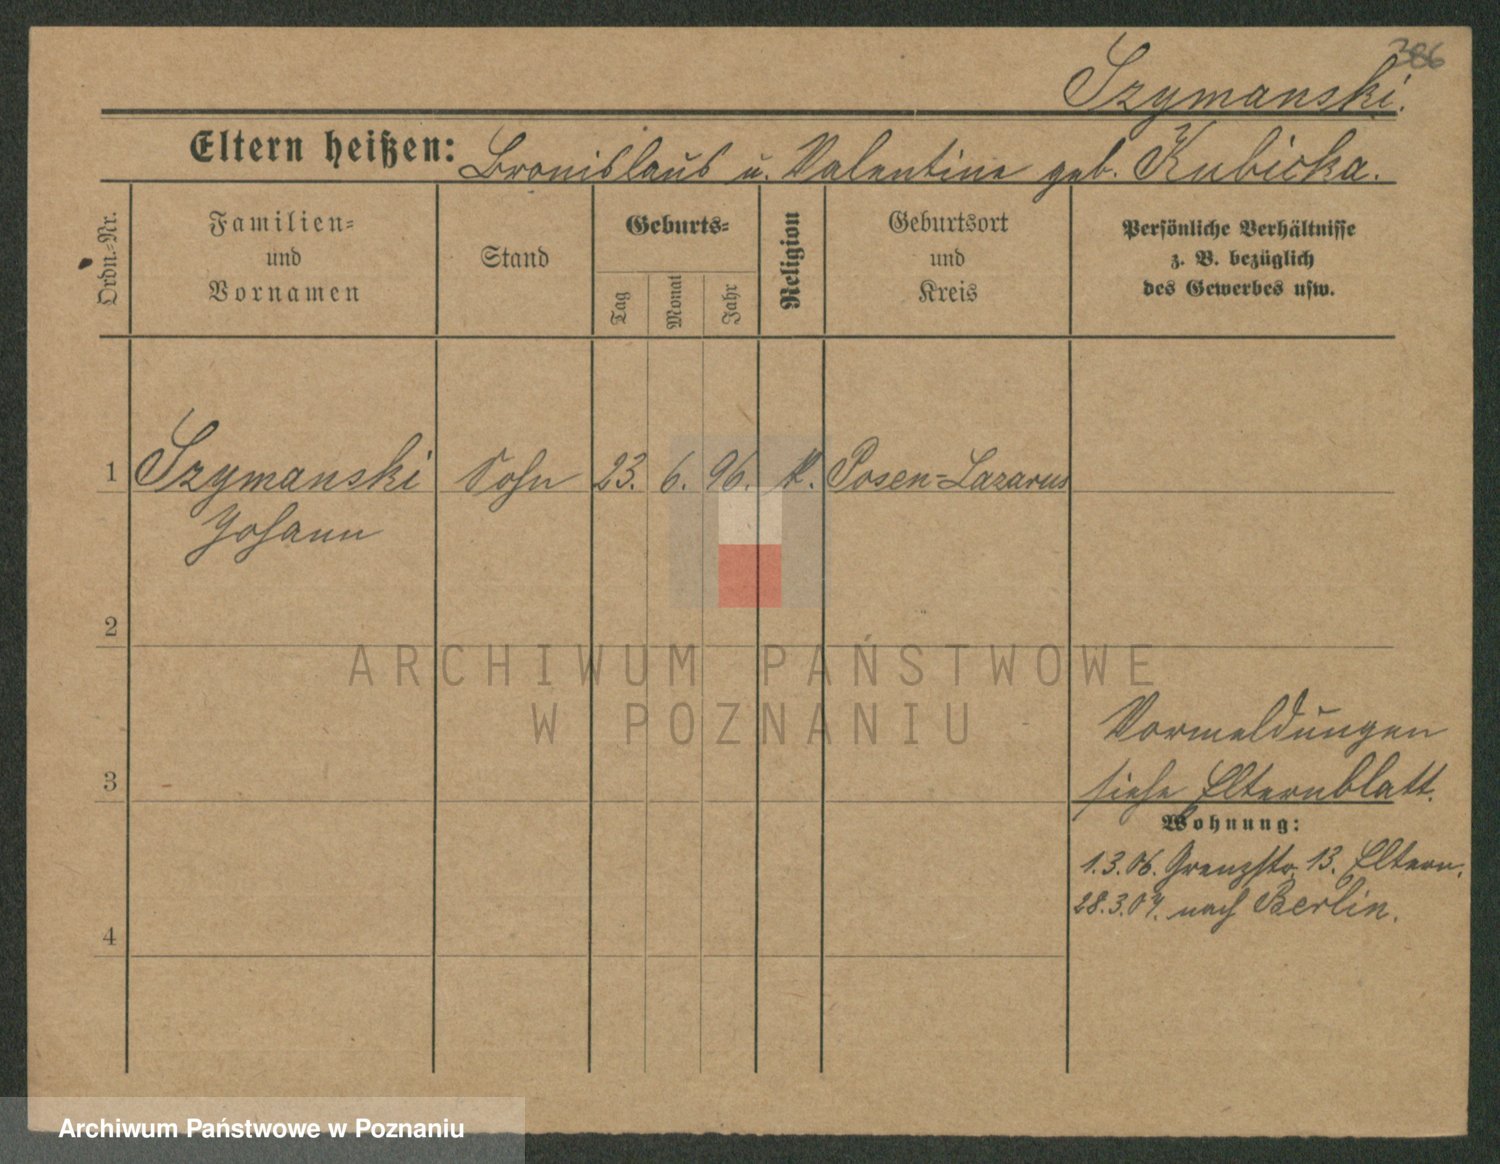 386
Szymanski.
Eltern heißen: Bronislaus u. Valentine geb. Kubicka.
Ordn.-Nr.
Familien-
und
Vornamen
Stand
Geburts-
Tag
Monat
Jahr
Religion
Geburtsort
und
Kreis
Persönliche Verhältnisse
z. B. bezüglich
des Gewerbes usw.
1 Szymanski Sohn 23. 6. 96. k. Posen=Lazarus
Johann
2
ARCHIWUM PAŃSTWOWE
W POZNANIU
Vormeldungen
3 siehe Elternblatt.
Wohnung:
1.3.06. Grenzstr. 13. Eltern.
28.3.07. nach Berlin.
4
Archiwum Państwowe w Poznaniu